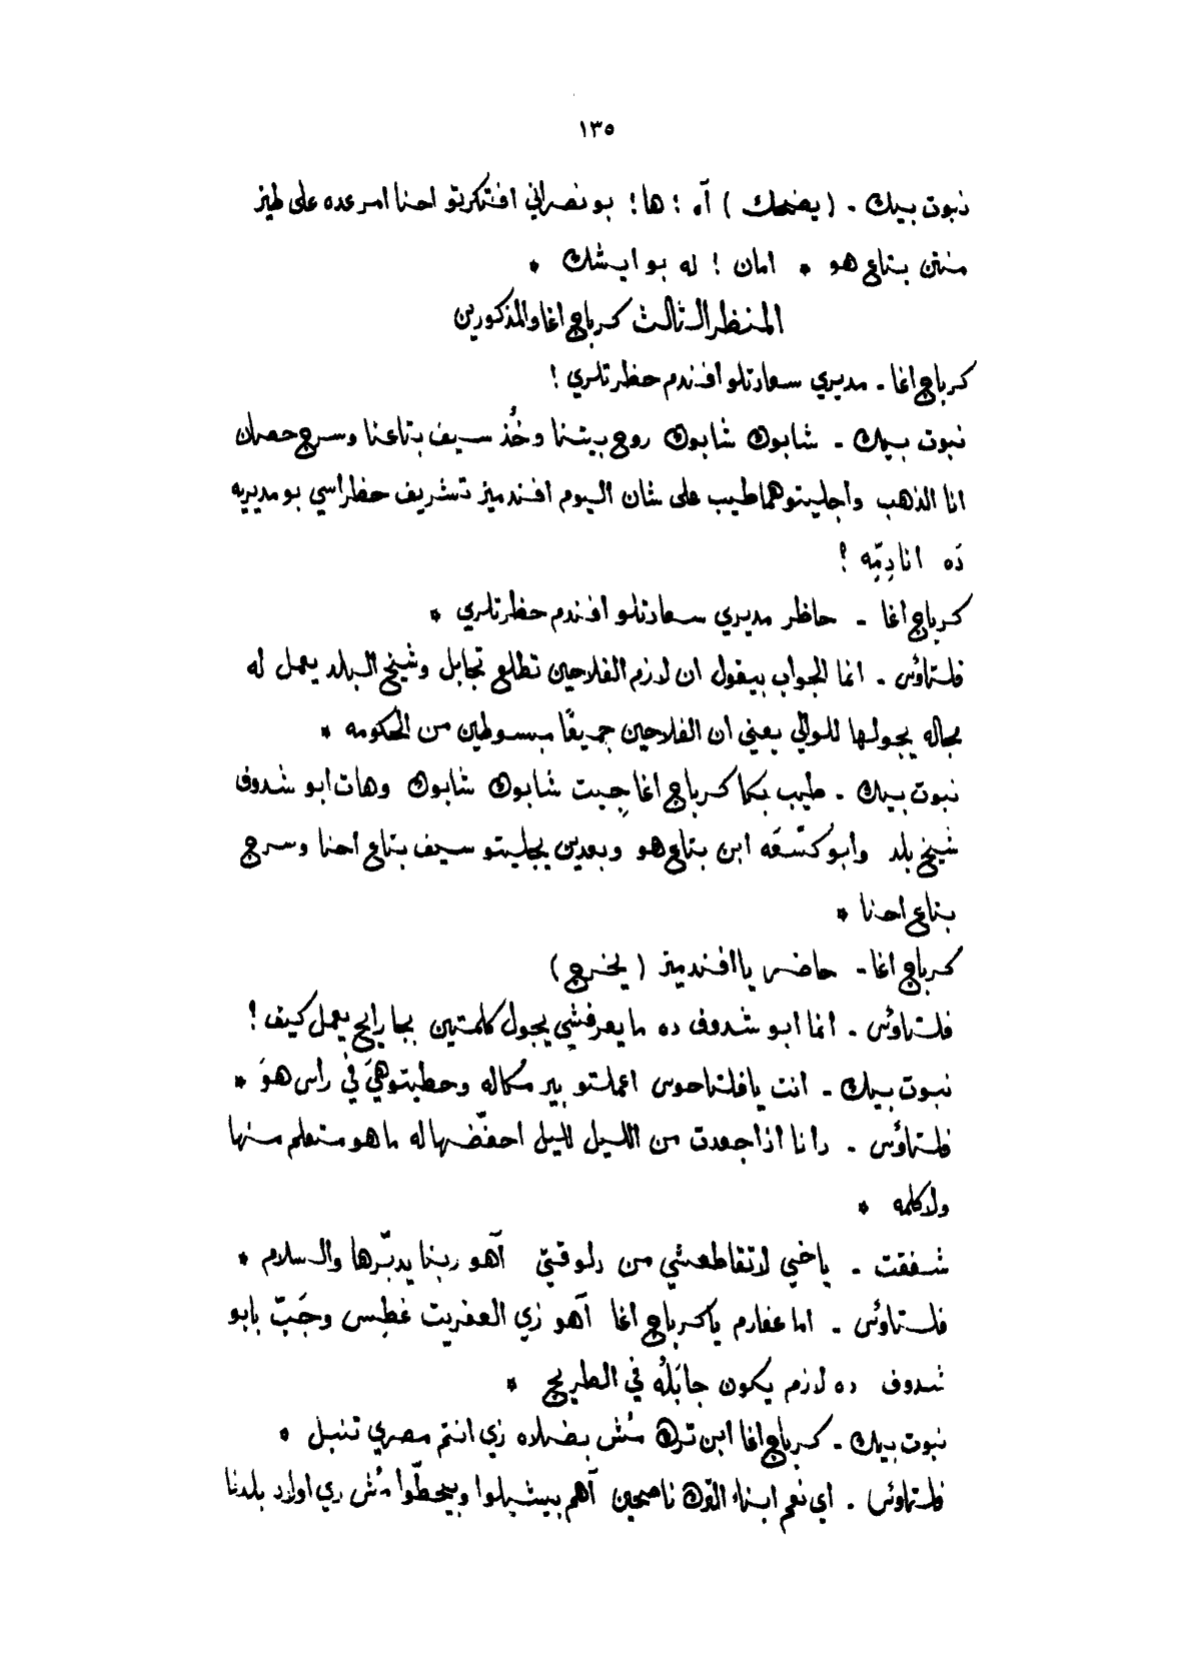 ١٣٥
نبوت بيك . ( يضحك ) آه ! ها ! بو نصراني افتكرتو احنا امر عده على طيز
منتن بتاع هو * امان ! له بو ايشك *
المنظر الثالث كرباج اغا والمذكورين
كرباج اغا - مديري سعادتلو افندم حظرتلري !
نبوت بيك - شابوك شابوك روح بيتنا وخُذ سيف بتاعنا وسرج حصان
انا الذهب واجليتوهما طيب على شان اليوم افندميز تشريف حظراسي بو مديريه
دَه انا دِمّه ؟
كرباج اغا - حاظر مديري سعادتلو افندم حظرتلري *
فلتاؤس . انما الجواب بيقول ان لازم الفلاحين تطلع تجابل وشيخ البلد يعمل له
مجاله يجولها للوالي يعني ان الفلاحين جميعًا مبسوطين من الحكومه *
نبوت بيك . طيب بكا كرباج اغا جِيبت شابوك شابوك وهات ابو شدوف
شيخ بلد وابو كتّسعَه ابن بتاع هو وبعدين يجليتو سيف بتاع احنا وسرج
بتاع احنا *
كرباج اغا - حاضر يا افندميز ( يخرج )
فلتاوُس . انما ابو شدوف ده ما يعرفشي يجول كلمتين بجا رايح يعمل كيف !
نبوت بيك - انت يا فلتاحوس اعملتو بير مُكاله وحطيتوهيَ في راس هوَ *
فلتاؤس . دانا اذا جعدت من الليل لليل احفّضها له ما هو متعلم منها
ولا كلمه *
شفقت - ياخي لا تقاطعشي من دلوقتي آهو ربنا يدبّرها والسلام *
فلتاوُس . اما عفارم يا كرباج اغا آهو زي العفريت غطِس وجَبّ بابو
شدوف ده لازم يكون جابَلُه في الطريج *
نبوت بيك . كرباج اغا ابن ترك مُش بضلاه زي انتم مصري تنبل *
فلتاوُس . اي نعم ابناء الترك ناصحين آهم بيشيلوا وبيحطّوا مُش زي اولاد بلدنا